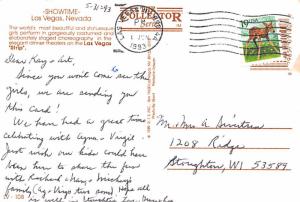 -SHOWTIME-
Las Vegas, Nevada
5-31-93
The world's most beautiful and statuesque
girls perform in gorgeously costumed and
elaborately staged choreography in the
elegant dinner theatres on the Las Vegas
"Strip".
COLLECTOR
Series
LAS VEGAS
PM
1993
19 USA
Dear Ray & Art,
Since you won't come see the
girls, we are sending you
this card!
We have had a great time
celebrating with Agnes & Virgil
Just wish our kids could have
been here to share the fun
with Richard & Mary & Mischung
family (Ag & Virg's two sons) Hope all
is well in Stoughton
LV-108
Mr. & Mrs A Sivertson
1208 Ridge
Stoughton, WI 53589